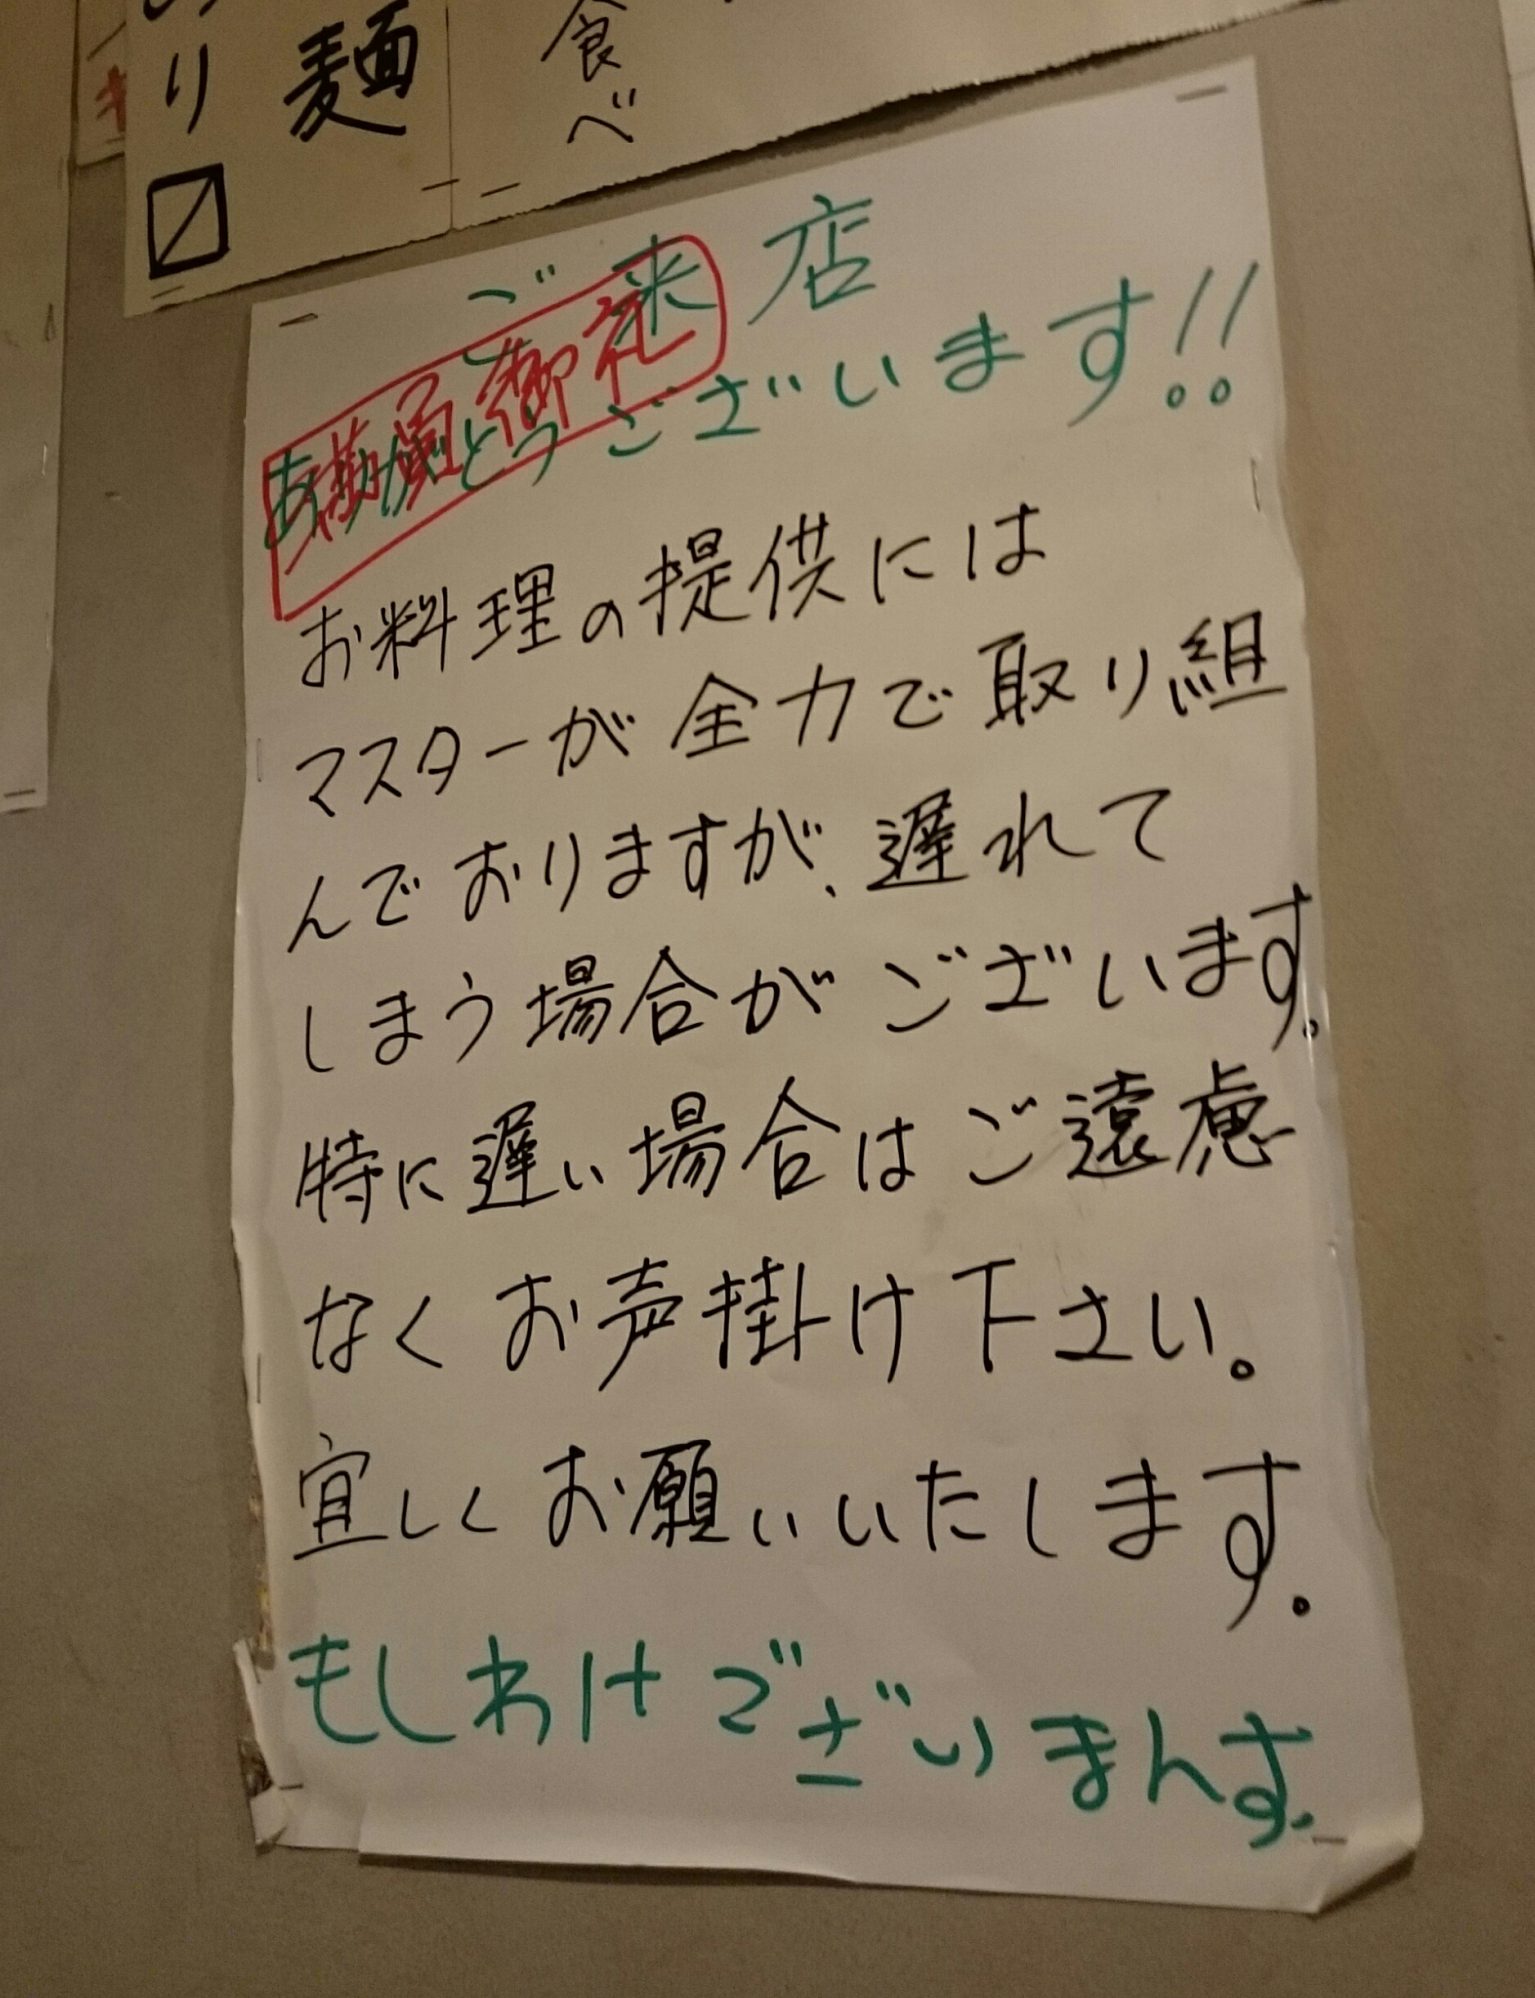 り
麺
食べ
ご来店
ありがとうございます!!
満員御礼
お料理の提供には
マスターが全力で取り組
んでおりますが、遅れて
しまう場合がございます。
特に遅い場合はご遠慮
なくお声掛け下さい。
宜しくお願いいたします。
もしわけございまんす。